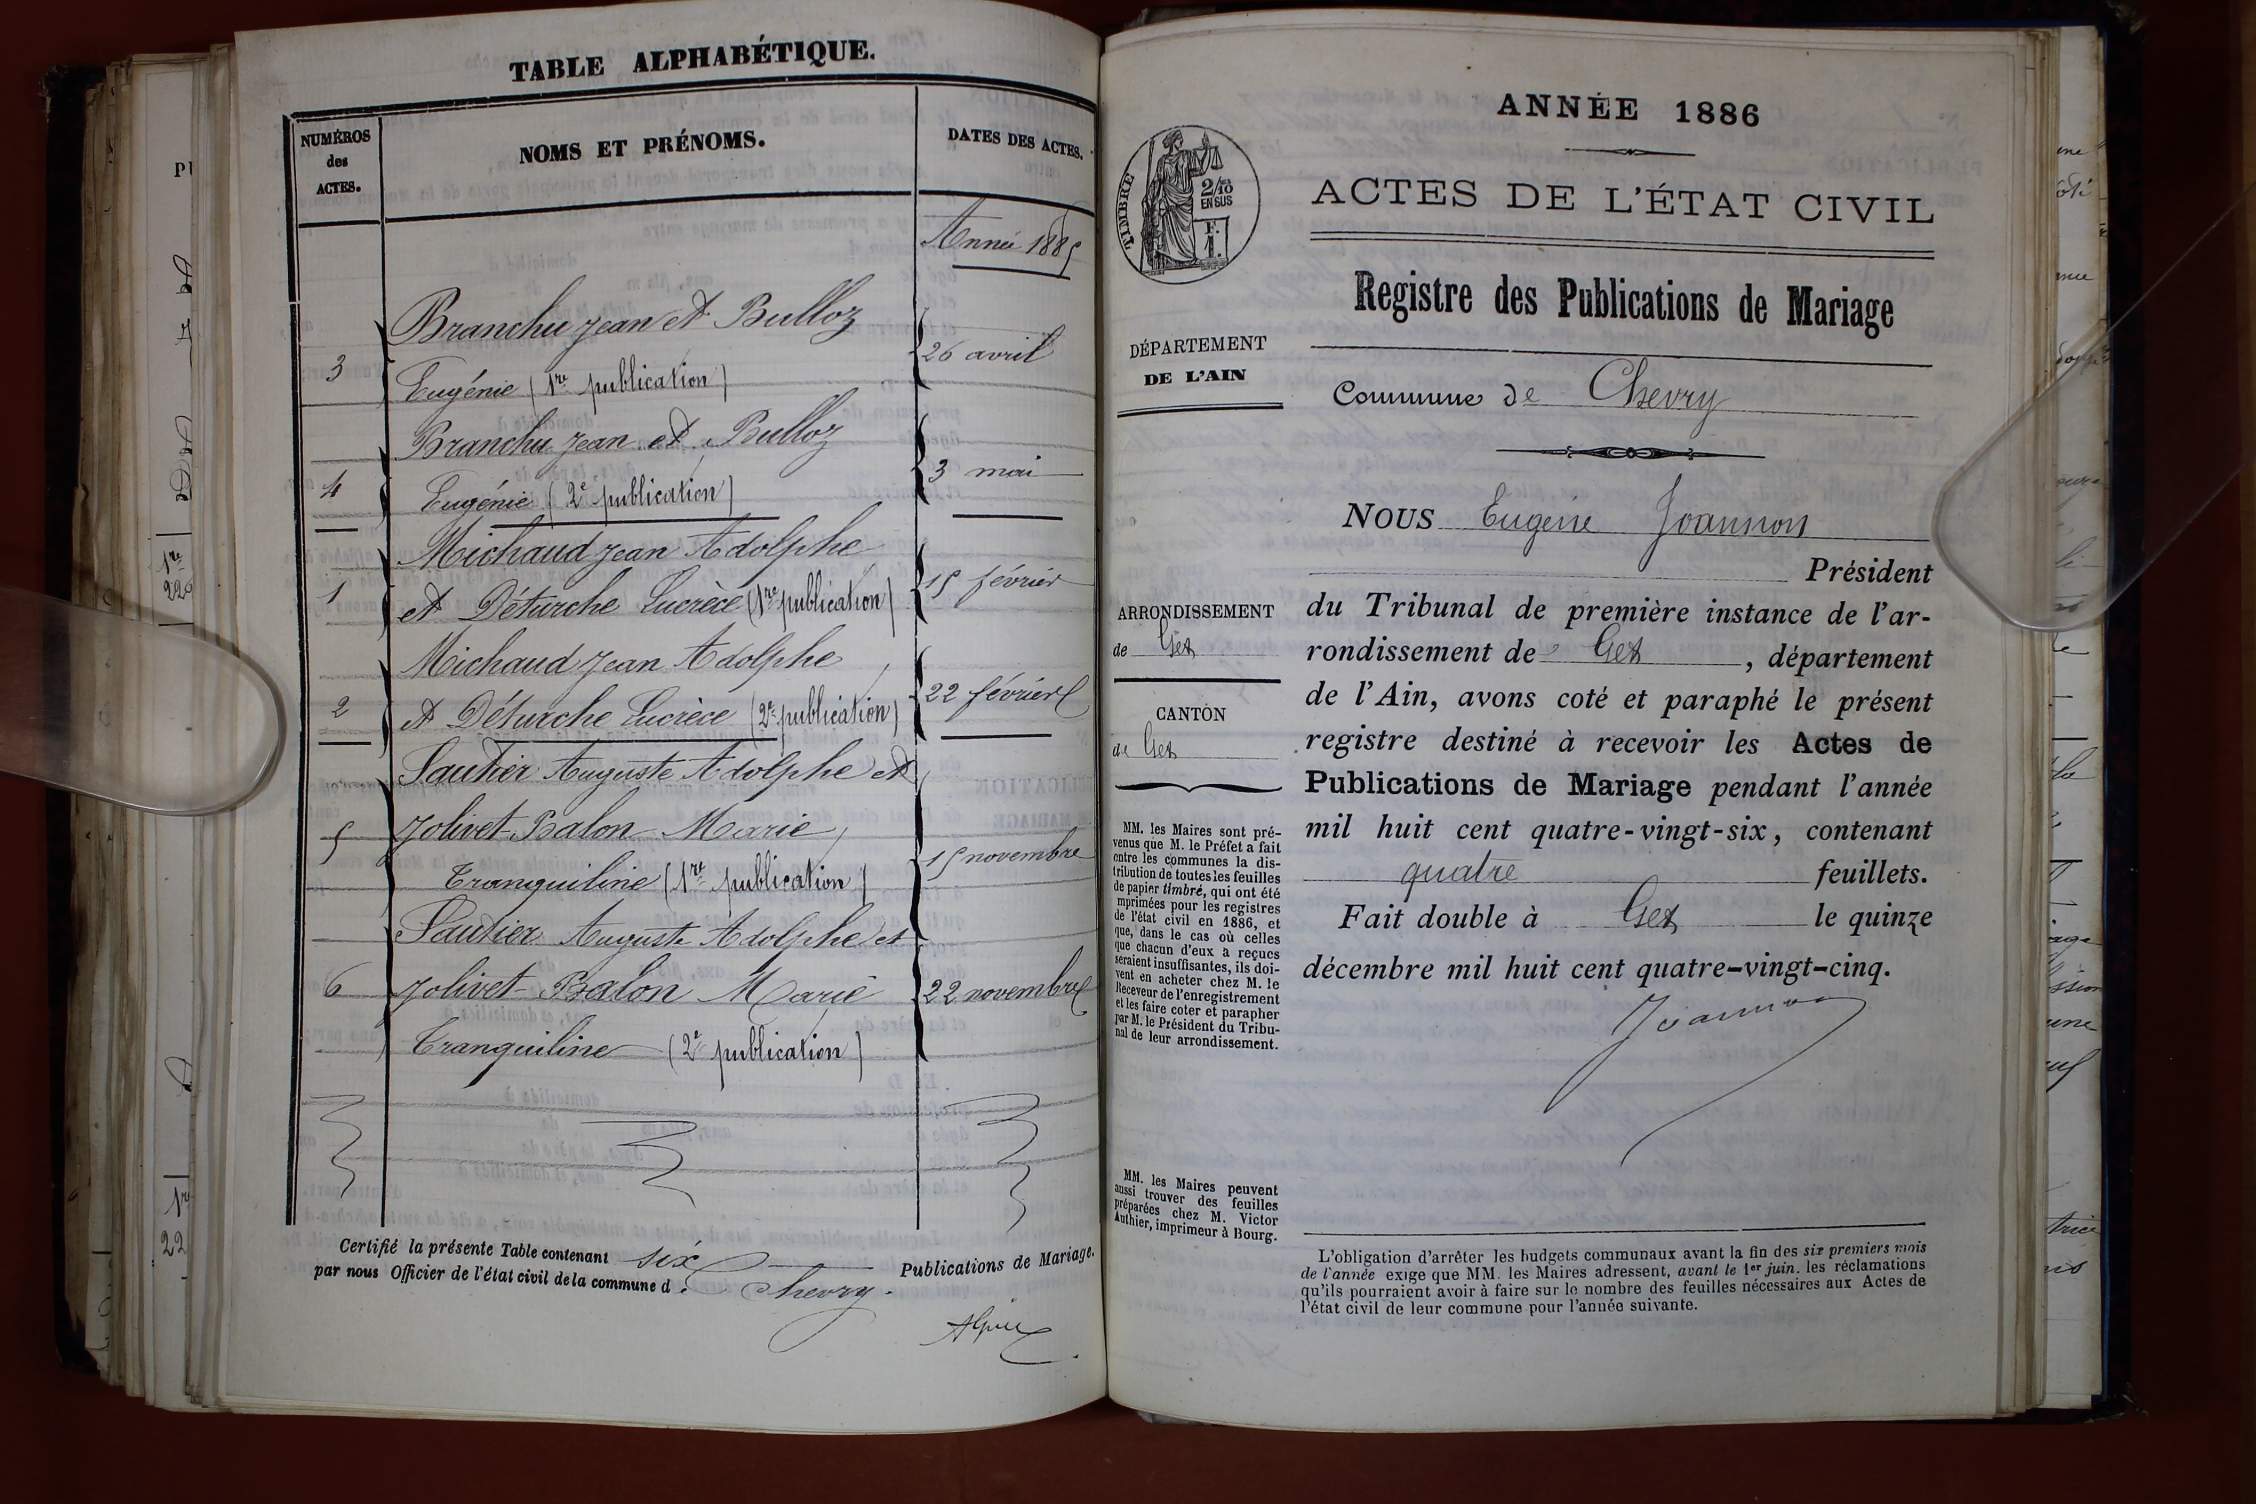 TABLE ALPHABÉTIQUE.
NUMÉROS
des
ACTES.
NOMS ET PRÉNOMS.
DATES DES ACTES.
Année 1885
Branchu Jean et Bulloz
3 Eugénie (1re publication) 26 avril
Branchu Jean et Bulloz
4 Eugénie (2e publication) 3 mai
Michaud Jean Adolphe
1 et Déturche Lucrèce (1re publication) 15 février
Michaud Jean Adolphe
2 et Déturche Lucrèce (2e publication) 22 février
Sautier Auguste Adolphe et
5 Jolivet-Balon Marie
Tranquiline (1re publication) 15 novembre
Sautier Auguste Adolphe et
6 Jolivet-Balon Marie 22 novembre
Tranquiline (2e publication)
Certifié la présente Table contenant six Publications de Mariage.
par nous Officier de l'état civil de la commune d Chevry.
ANNÉE 1886
TIMBRE
2/10
EN SUS
F.
1.
ACTES DE L'ÉTAT CIVIL
Registre des Publications de Mariage
DÉPARTEMENT
DE L'AIN
Commune de Chevry
NOUS Eugène Joannon
Président
du Tribunal de première instance de l'ar-
rondissement de Gex, département
de l'Ain, avons coté et paraphé le présent
registre destiné à recevoir les Actes de
Publications de Mariage pendant l'année
mil huit cent quatre-vingt-six, contenant
quatre feuillets.
Fait double à Gex le quinze
décembre mil huit cent quatre-vingt-cinq.
Joannon
ARRONDISSEMENT
de Gex
CANTON
de Gex
MM. les Maires sont pré-
venus que M. le Préfet a fait
entre les communes la dis-
tribution de toutes les feuilles
de papier timbré, qui ont été
imprimées pour les registres
de l'état civil en 1886, et
que, dans le cas où celles
que chacun d'eux a reçues
seraient insuffisantes, ils doi-
vent en acheter chez M. le
Receveur de l'enregistrement
et les faire coter et parapher
par M. le Président du Tribu-
nal de leur arrondissement.
MM. les Maires peuvent
aussi trouver des feuilles
préparées chez M. Victor
Authier, imprimeur à Bourg.
L'obligation d'arrêter les budgets communaux avant la fin des six premiers mois
de l'année exige que MM. les Maires adressent, avant le 1er juin, les réclamations
qu'ils pourraient avoir à faire sur le nombre des feuilles nécessaires aux Actes de
l'état civil de leur commune pour l'année suivante.